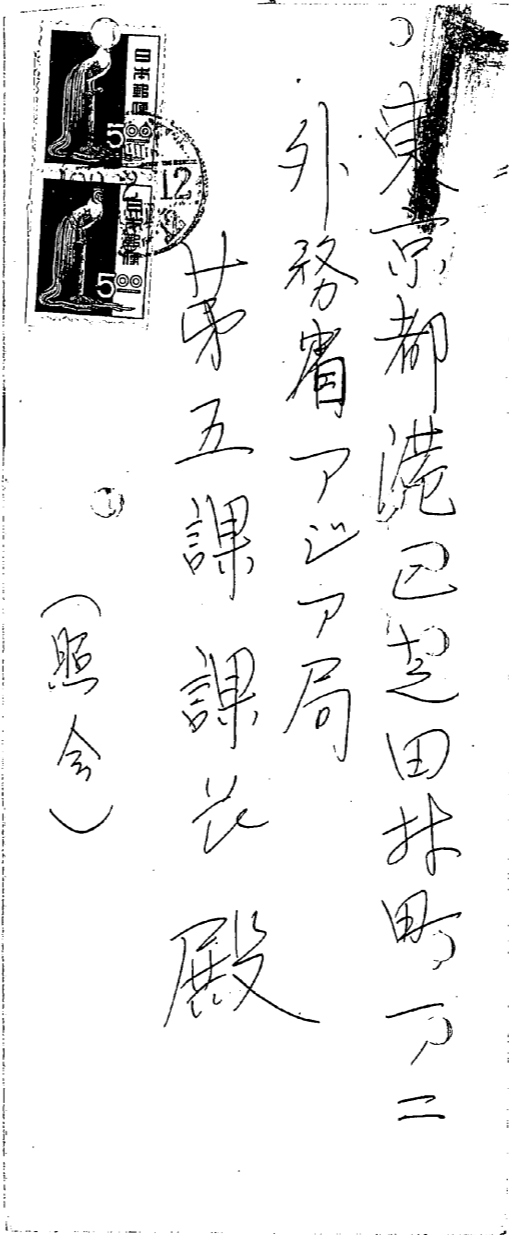 東京都港区芝田村町一ノ二
外務省アジア局
第五課課長 殿
(照会)
日本郵便
500
日本郵便
500
12